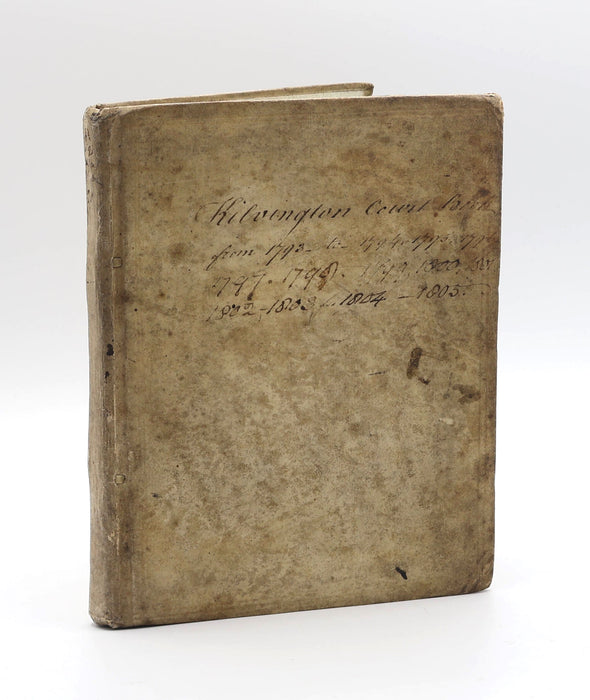 Kilvington Court Book
from 1793 to 1794 1795
1797. 1798. 1799. 1800.
1802 - 1803 1804 - 1805.